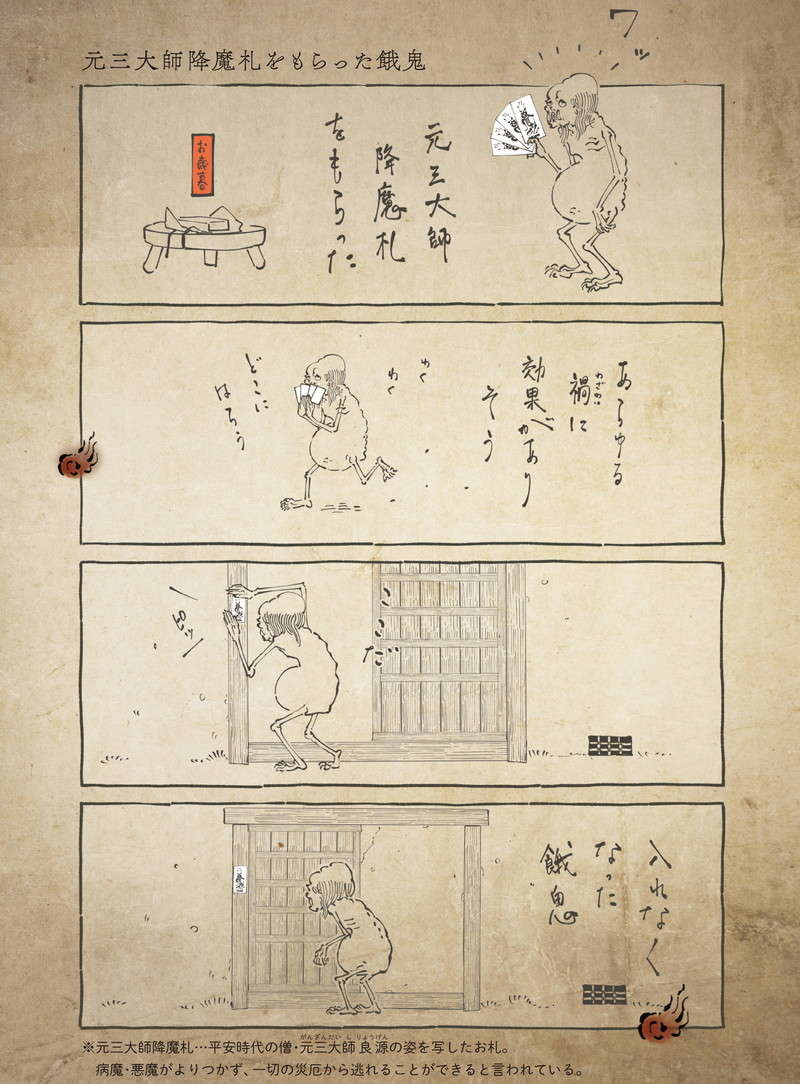 元三大師降魔札をもらった餓鬼
ワッ
元三大師
降魔札
をもらった
お歳暮
あらゆる
禍に
わざわい
効果がありそう
わくわく
どこに
はろう
ここだ
ピッ
入れなく
なった
餓鬼
※元三大師降魔札…平安時代の僧・元三大師良源の姿を写したお札。
がんざんだいしりょうげん
病魔・悪魔がよりつかず、一切の災厄から逃れることができると言われている。